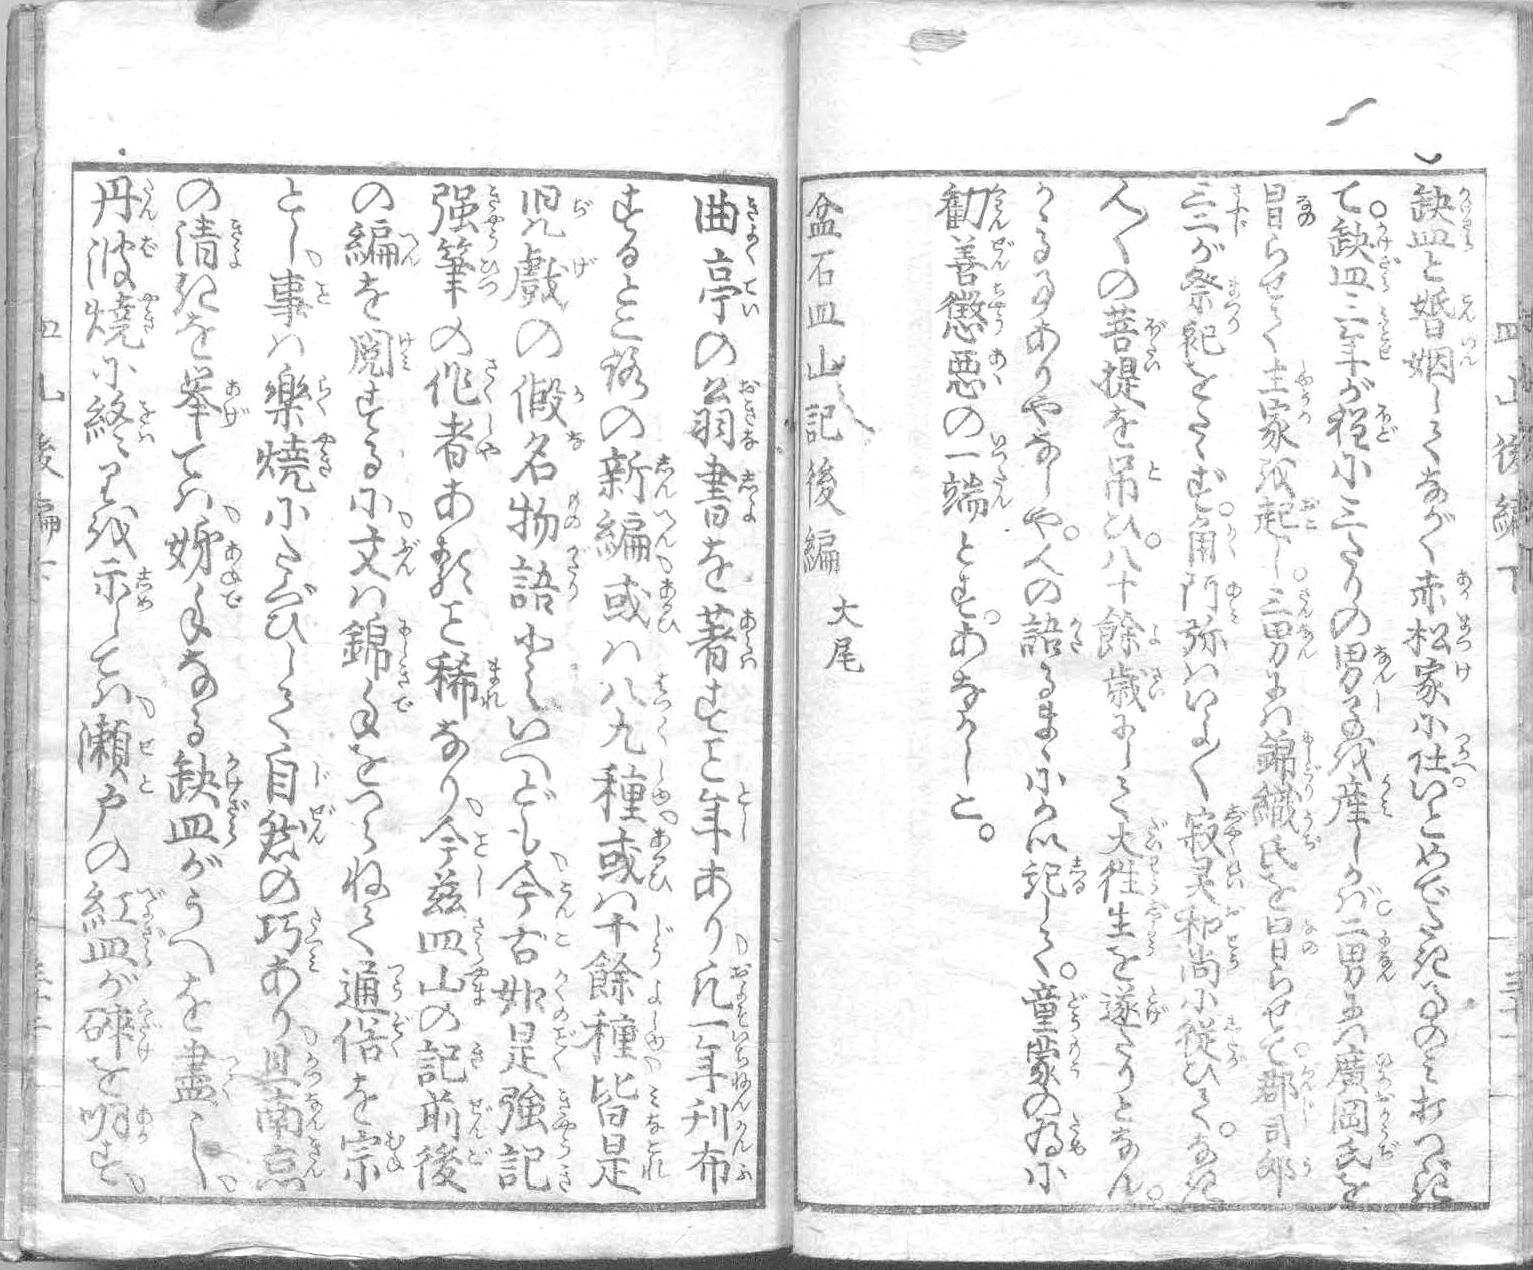 缺皿と婚姻してながく赤松家に仕いとめでたきことのみ打つゞき
て。缺皿三年が程に三たりの男子を産しかば。二男には廣岡氏を
冒らせて主家を起し。三男には錦織氏を冒らせて。郡司郎
三二が祭祀をたゝず。角阿弥はいよ〳〵寂灵和尚に従ひて。なき
人〳〵の菩提を吊ひ。八十餘歳にして大往生を遂たりとなん。
かゝる事ありやなしや。人の語るまゝにかい記して。童蒙の為に
勧善懲悪の一端とす。あなかしこ。
盆石皿山記後編 大尾
曲亭の翁書を著すこと年あり凡一年刊布
するところの新編或ハ八九種或ハ十餘種皆是
児戯の假名物語といへども今古如是強記
強筆の作者あることは稀なり今茲皿山の記前後
の編を閲するに文ハ錦手をつらねて通俗を宗
とし事ハ樂焼にたぐひして自然の巧あり且南京
の清きを挙てハ姉手なる缺皿がうへを盡し
丹波焼に終りを示してハ瀬戸の紅皿が碎を明す
皿山後編下
三十一